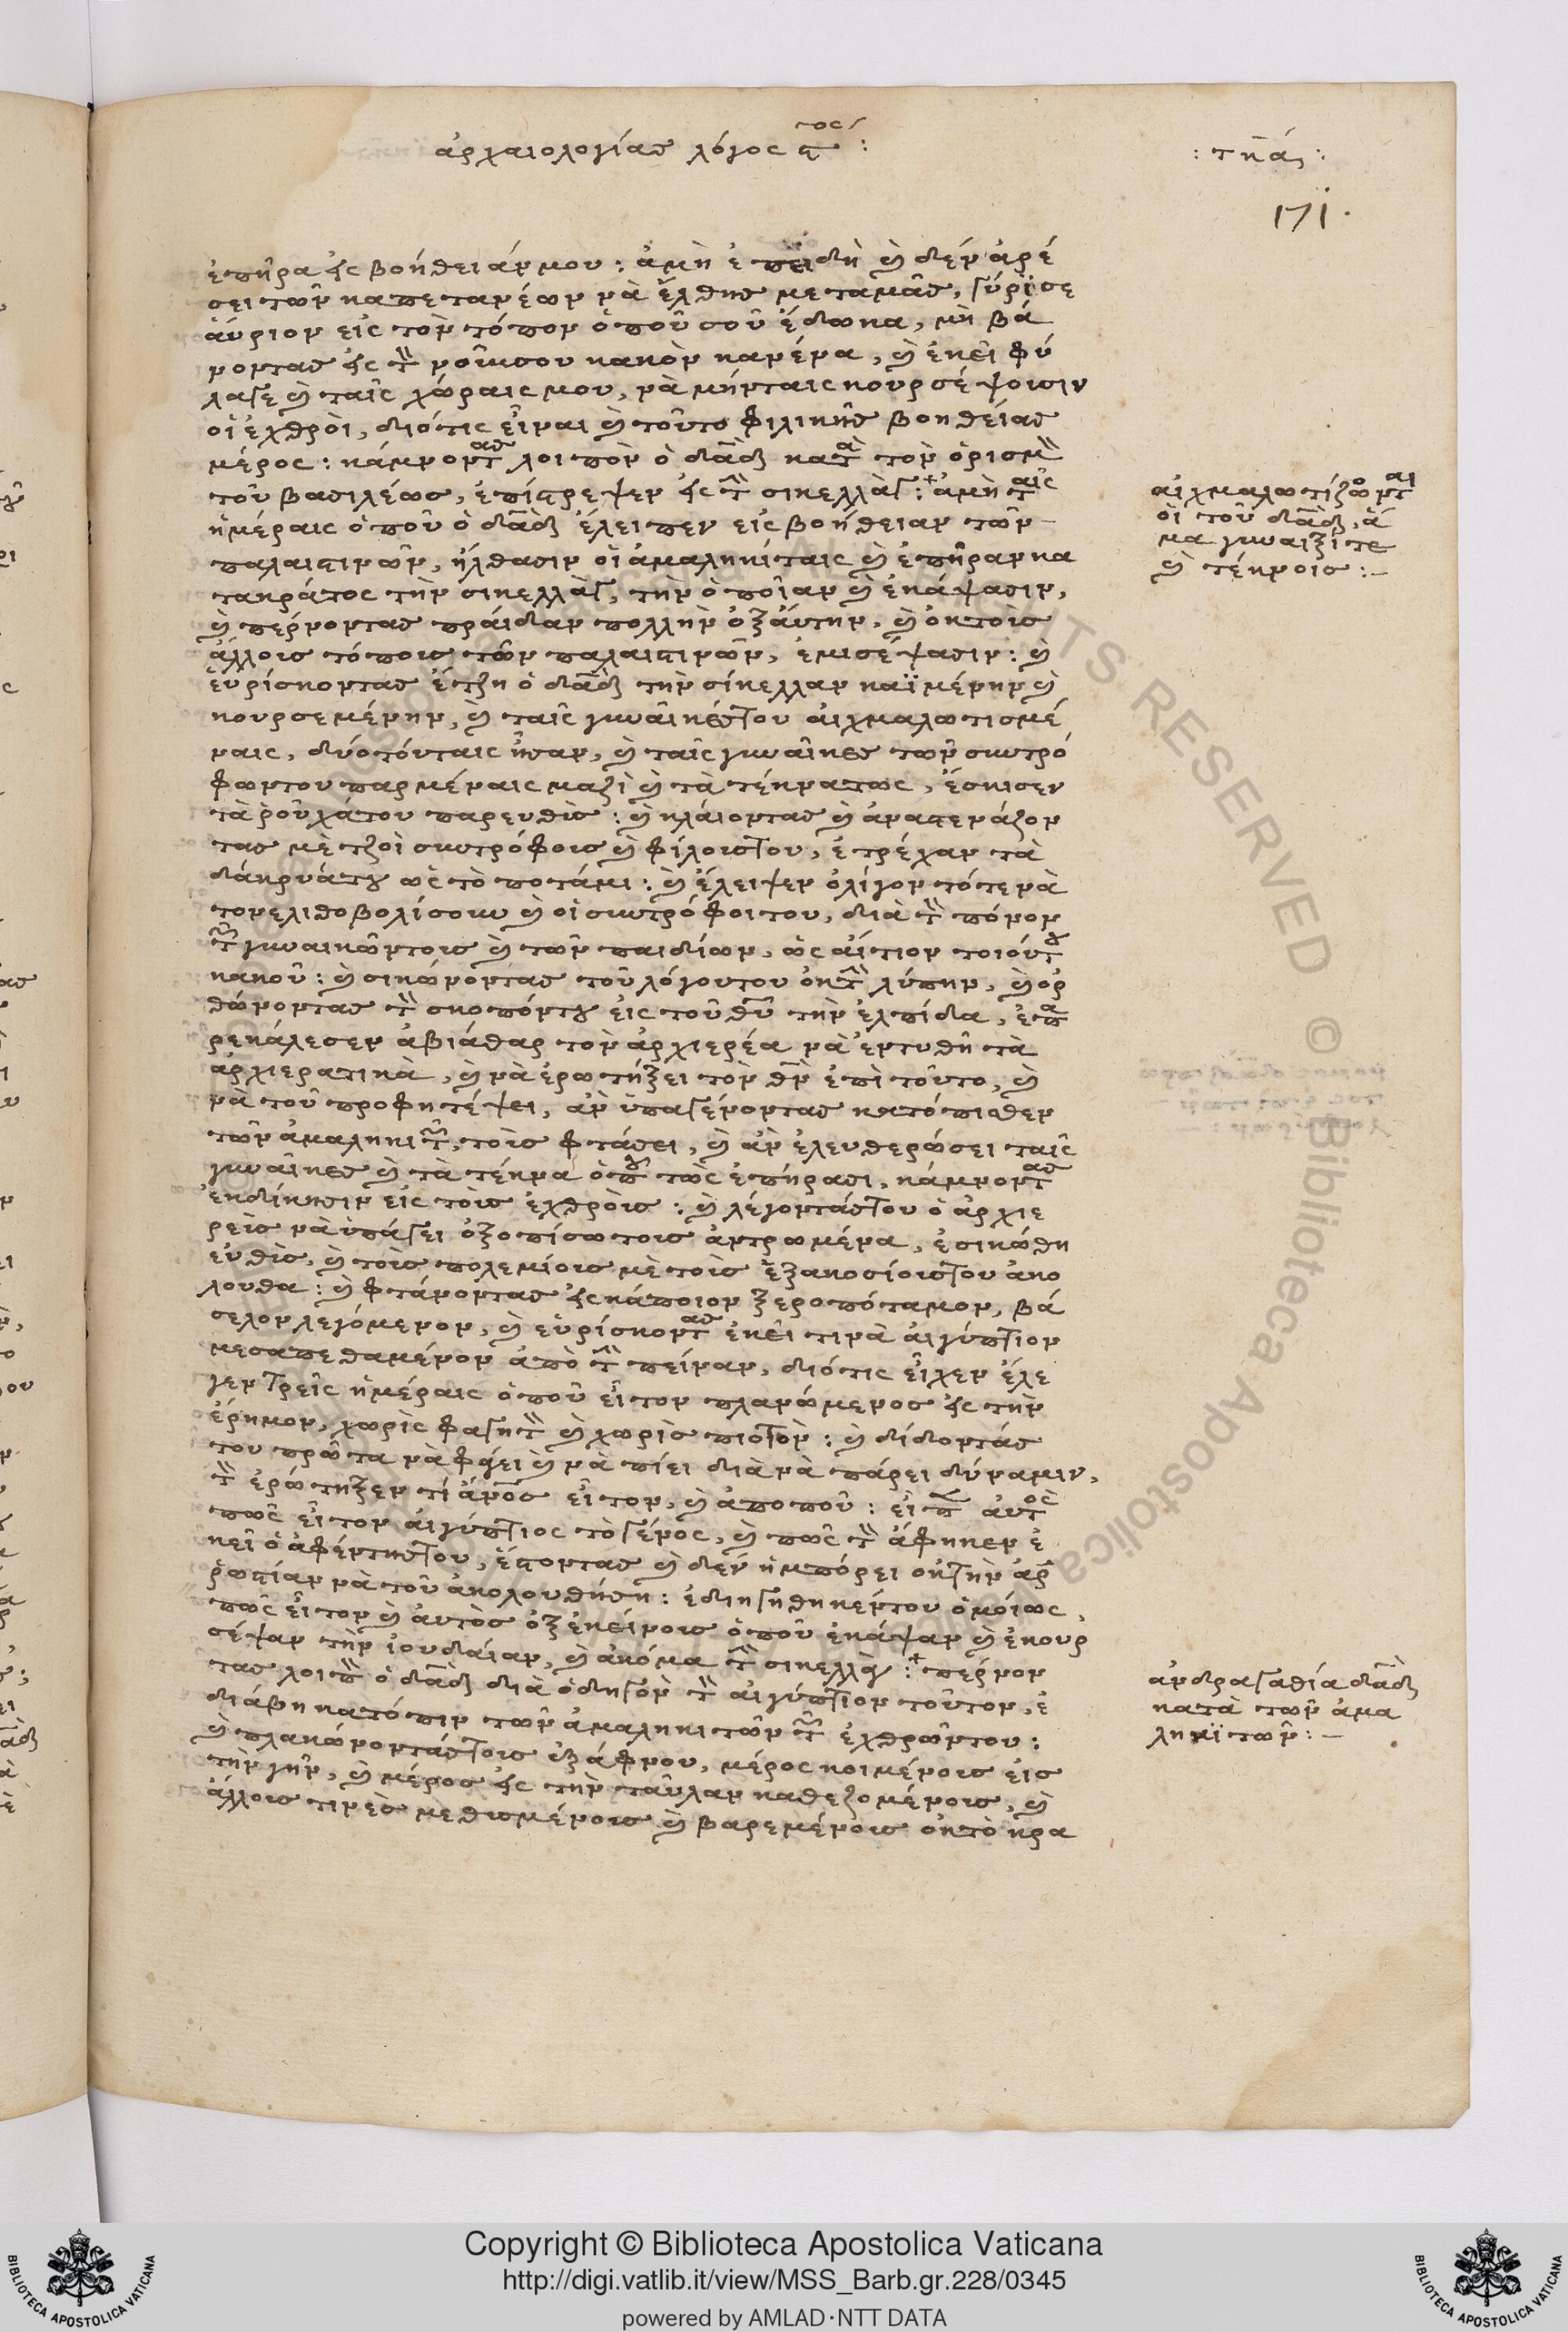 ἀρχαιολογίας λόγος ϛτος:
: τκά, :
171.
ἐπῆρα εἰς βοήθειάν μου: ἀμὴ ἐπειδὴ καὶ δὲν ἀρέ
σει τῶν καπεταναίων νὰ ἔλθῃς μεταμᾶς, γύρισε
ἄυριον εἰς τὸν τόπον ὁποῦ σοῦ ἔδωκα, μὴ βά
νοντας εἰς τὸν νοῦν σου κακὸν κανένα, καὶ ἐκεῖ φύ
λαγε καὶ ταῖς χώραις μου, νὰ μήνταις κουρσέψουσιν
οἱ ἐχθροὶ, διότις εἶναι καὶ τοῦτο φιλικῆς βοηθείας
μέρος: κάμνοντας λοιπὸν ὁ δαδ κατὰ τὸν ὁρισμὸν
τοῦ βασιλέως, ἐπίστρεψεν εἰς τὴν σικελλὰγ: + ἀμὴ ταῖς
ἡμέραις ὁποῦ ὁ δαδ ἔλειπεν εἰς βοήθειαν τῶν
παλαιστινῶν, ἤλθασιν οἱ ἀμαληκίταις καὶ ἐπῆραν κα
τακράτος τὴν σικελλὰγ, τὴν ὁποῖαν καὶ ἐκάψασιν,
καὶ πέρνοντας πράιδαν πολλὴν ὀξάυτην, καὶ ὀκτοὶς
ἄλλοις τόποις τῶν παλαιστινῶν, ἐμισέψασιν: καὶ
εὑρίσκοντας ἔτζη ὁ δαδ τὴν σίκελλαν καϊμένην καὶ
κουρσεμένην, καὶ ταῖς γυναῖκέςτου αἰχμαλωτισμέ
ναις, δύοτόνταις ἦσαν, καὶ ταῖς γυναῖκες τῶν συντρό
φωντου παρμέναις μαζὶ καὶ τὰ τέκνατως, ἔσκισεν
τὰ ῥοῦχάτου παρευθὺς: καὶ κλάιοντας καὶ ἀναστενάζον
τας μὲ τζοὶ συντρόφοις καὶ φίλοιςτου, ἐτρέχαν τὰ
δάκρυάτου ὡς τὸ ποτάμι: καὶ ἔλειψεν ὀλίγον τότε νὰ
τονελιθοβολίσουν καὶ οἱ συντρόφοιτου, διὰ τὸν πόνον
τῶν γυναικῶντοις καὶ τῶν παιδίων, ὡς ἄιτιον τοιούτου
κακοῦ: καὶ σικώνοντας τοῦ λόγουτου ὀκτὴν λύπην, καὶ ὀρ
θώνοντας τὸν σκοπόντου εἰς τοῦ θυ τὴν ἐλπίδα, ἐπα
ρεκάλεσεν ἀβιάθαρ τὸν ἀρχιερέα νὰ ἐντυθῆ τὰ
ἀρχιερατικὰ, καὶ νὰ ἐρωτήξει τὸν θν ἐπὶ τοῦτο, καὶ
νὰ τοῦ προφητέψει, ἀν ὑπαγένοντας κατόπισθεν
τῶν ἀμαληκιτῶν, τοὶς φτάσει, καὶ ἀν ἐλευθερώσει ταῖς
γυναῖκες καὶ τὰ τέκνα ὁποῦ τῶς ἐπήρασι, κάμνοντας
ἐκδίκησιν εἰς τοὶς ἐχθροὶς: καὶ λέγοντάςτου ὁ ἀρχιε
ρεὶς νὰ ὑπάγει ὀξοπίσωτοις ἀντρωμένα, ἐσικώθη
εὐθὶς, καὶ τοὶς πολεμίοις μὲ τοὶς ἑξακοσίοιςτου ἀκο
λουθα: καὶ φτάνοντας εἰς κάποιον ξεροπόταμον, βά
σελον λεγόμενον, καὶ εὑρίσκοντας ἐκεῖ τινὰ ἀιγύπτιον
μεσαπεθαμένον ἀπὸ τὴν πείναν, διότις εἶχεν ἔλε
γεν τρεῖς ἡμέραις ὁποῦ εἶτον πλανώμενος εἰς τὴν
ἔρημον, χωρὶς φαγητὸν καὶ χωρὶς πιοτὸν: καὶ δίδοντάς
του πρῶτα νὰ φάγει καὶ νὰ πίει διὰ νὰ πάρει δύναμιν,
τὸν ἐρώτηξεν τί ἄνος εἶτον, καὶ ἀποποῦ: εἶπεν ἀυτὸς
πῶς εἶτον ἀιγύπτιος τὸ γένος, καὶ πῶς τὸν ἄφηκεν ἐ
κεῖ ὁ ἀφέντηςτου, ἔστοντας καὶ δὲν ἠμπόρει ὀκτὴν ἀρ
ρωστίαν νὰ τοῦ ἀκολουθήση: ἐδιηγήθηκέντου ὁμοίως,
πῶς εἶτον καὶ ἀυτὸς ὀξ ἐκείνοις ὁποῦ ἐκάψαν καὶ ἐκουρ
σέψαν τὴν ἰουδαίαν, καὶ ἀκόμα τὴν σικελλὰγ: + πέρνον
τας λοιπὸν ὁ δαδ διὰ ὁδηγὸν τὸν ἀιγύπτιον τοῦτον, ἐ
διάβη κατόπιν τῶν ἀμαληκιτῶν τῶν ἐχθρῶντου:
καὶ πλακώνοντάςτοις ἐξάφνου, μέρος κοιμένοις εἰς
τὴν γῆν, καὶ μέρος εἰς τὴν τάυλαν καθεζομένοις, καὶ
ἄλλοις τινὲς μεθυσμένοις καὶ βαρεμένοις ὀκτὸ κρα
αἰχμαλωτίζονται
οἱ τοῦ δαδ, ἅ
μα γυναιξί τε
καὶ τέκνοις:-
ἀνδραγαθία δαδ
κατὰ τῶν ἀμα
ληκϊτῶν:-
Copyright © Biblioteca Apostolica Vaticana
http://digi.vatlib.it/view/MSS_Barb.gr.228/0345
powered by AMLAD·NTT DATA
BIBLIOTECA APOSTOLICA VATICANA
BIBLIOTECA APOSTOLICA VATICANA